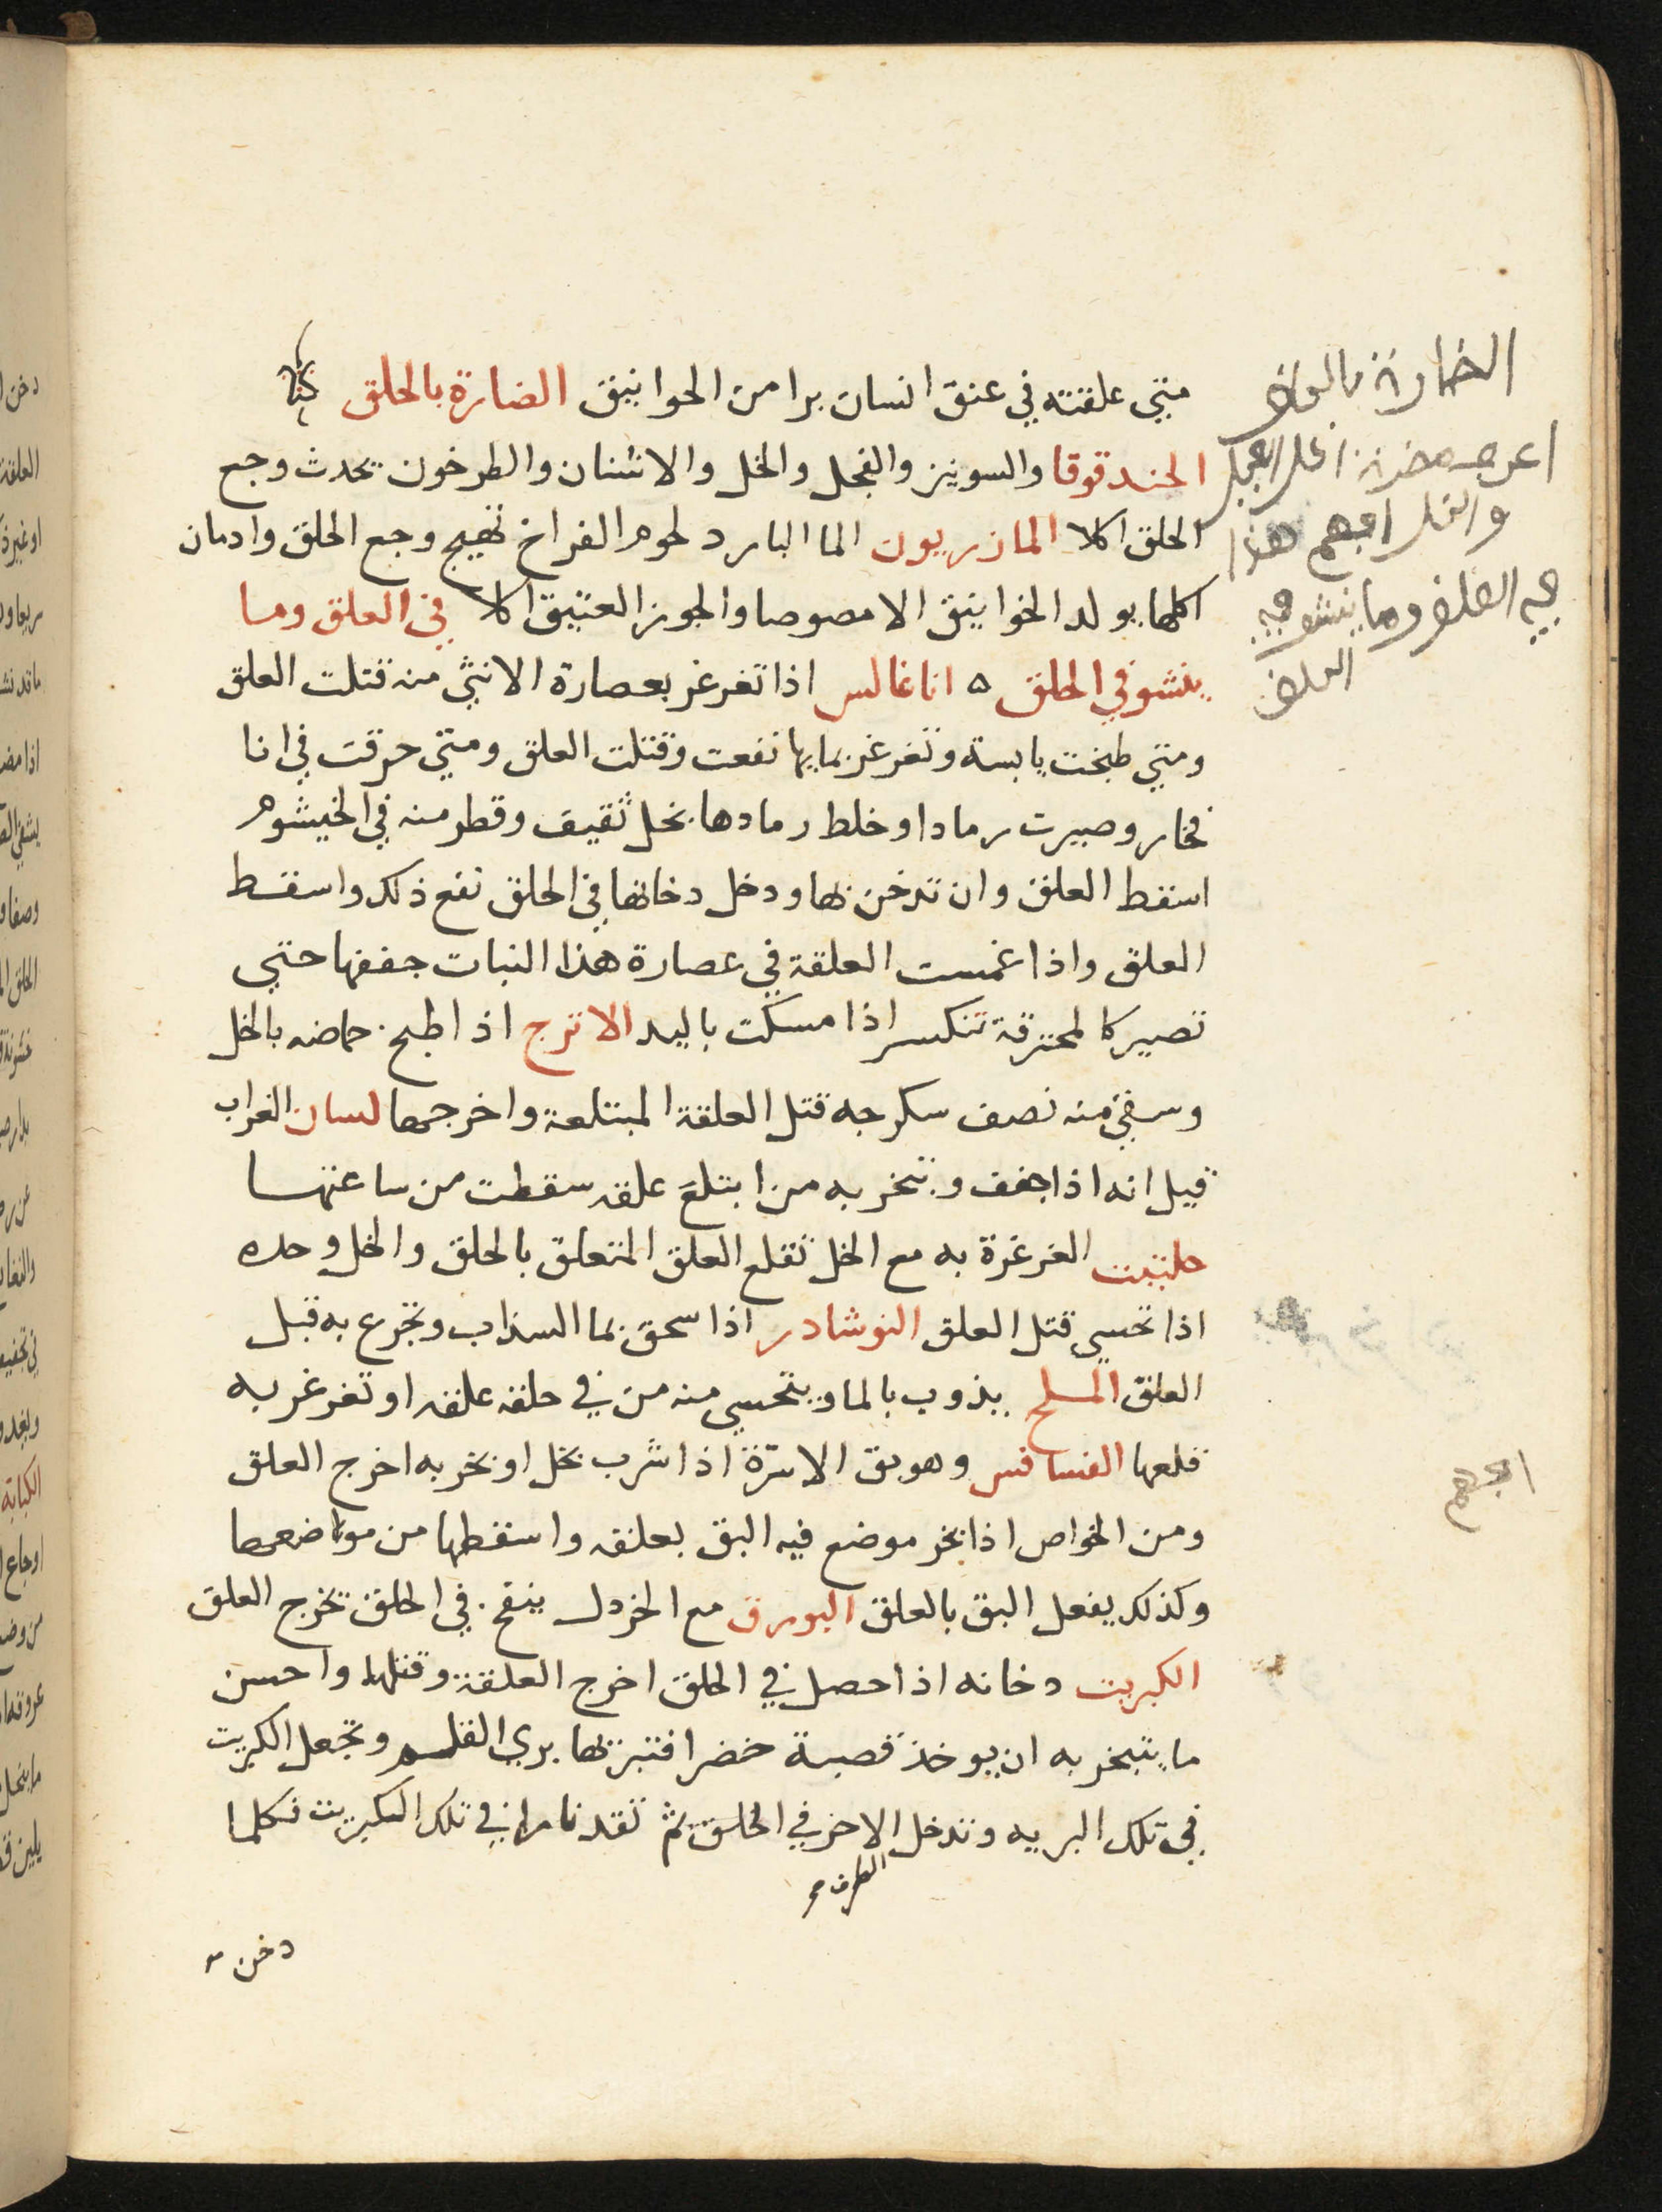 متي علقته في عنق انسان برا من الحوانيق الضارة بالحلق
الحندقوقا والسونيز والفجل والخل والاشنان والطرخون يحدث وجع
الحلق اكلا المازريون الما البارد لحوم الفراخ تهيج وجع الحلق وادمان
اكلها يولد الخوانيق الامصوصا والجوز العتيق اكلا في العلق وما
ينشو في الحلق ه اناغالس اذا تغرغر بعصارة الانثي منه قتلت العلق
ومتي طبخت يابسة وتغرغر بمايها نفعت وقتلت العلق ومتي حرقت في انا
فخار وصيرت رمادا وخلط رمادها بخل ثقيف وقطر منه في الخيشوم
اسقط العلق وان تدخن بها ودخل دخانها في الحلق نفع ذلك واسقط
العلق واذا غمست العلقة في عصارة هذا النبات جففها حتي
تصير كالمحترقة تنكسر اذا مسكت باليد الاترج اذا طبخ حماضه بالخل
وسقي منه نصف سكرجه قتل العلقة المبتلعة واخرجها لسان الغراب
قيل انه اذا جفف وتبخر به من ابتلع علقه سقطت من ساعتها
حلتيت الغرغرة به مع الخل تقلع العلق المتعلق بالحلق والخل وحده
اذا تحسي قتل العلق النوشادر اذا سحق بما السذاب وتجرع به قتل
العلق الملح يذوب بالما ويتحسي منه من في حلقه علقه او تغرغر به
قلعها الفسافس وهو بق الاسرة اذا شرب بخل او بخر به اخرج العلق
ومن الخواص اذا بخر موضع فيه البق بعلقه واسقطها من مواضعها
وكذلك يفعل البق بالعلق البورق مع الخردل ينفخ في الحلق تخرج العلق
الكبريت دخانه اذا حصل في الحلق اخرج العلقة وقتلها واحسن
ما يتبخر به ان يوخذ قصبة خضرا فتبرنها بري القلم وتجعل الكبريت
في تلك البريه وتدخل الاخر في الحلق ثم تقد نارا في تلك الكبريت فكلما
الطرف
دخن
الضارة بالحلق
هذا
في العلق وما ينشو في
الحلق